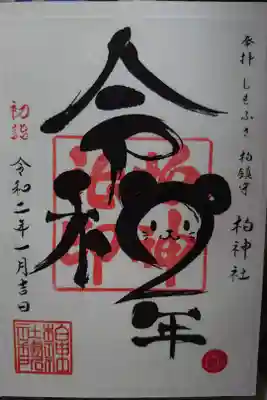 奉拝 しもふさ 柏鎮守 柏神社
令和2年
初詣
令和二年一月吉日